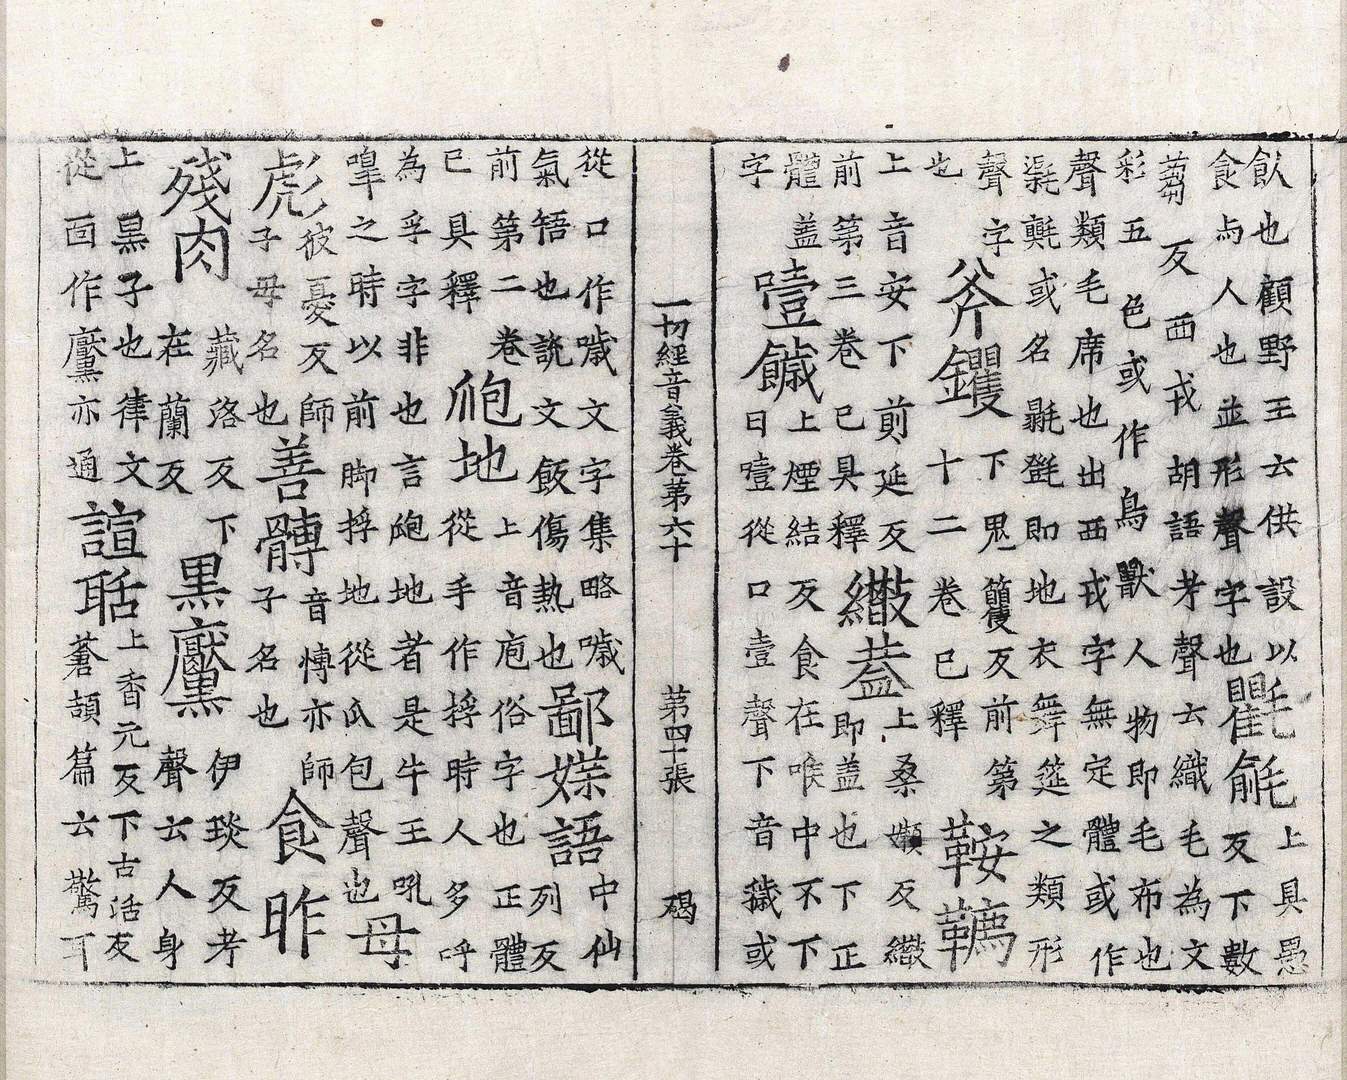 飲也顧野王云供設以
食与人也並形聲字也
氍㲣
上具愚
反下數
蒭反西戎胡語考聲云織毛為文
彩五色或作鳥獸人物即毛布也
聲類毛席也出西戎字無定體或作
或名即地衣舞筵之類形
聲字
也
斧钁
下籰反前第
十二卷已釋
鞍韉
上音安下前延反
前第三卷已具釋
繖蓋
上桑嬾反繖
即蓋也下正
體蓋
字
噎
上煙結反食在喉中不下
曰噎從口壹聲下音穢或
一切經音義卷第六十 第四十張 碣
從口作噦文字集略噦
氣啎也說文飯傷熱也
鄙媟語
中仙
列反
前第二卷
已具釋
皰地
上音庖俗字也正體
從手作捊時人多呼
為孚字非也言皰地者是牛王吼
嘷之時以前脚捊地從瓜包聲也
母彪
彼憂反師
子母名也
善髆
音愽亦師
子名也
食昨
殘肉
藏洛反下
在蘭反
黑黶
伊琰反考
聲云人身
上黑子也律文
從面作黶亦通
諠聒
上香元反下古活反
蒼頡篇云驚耳